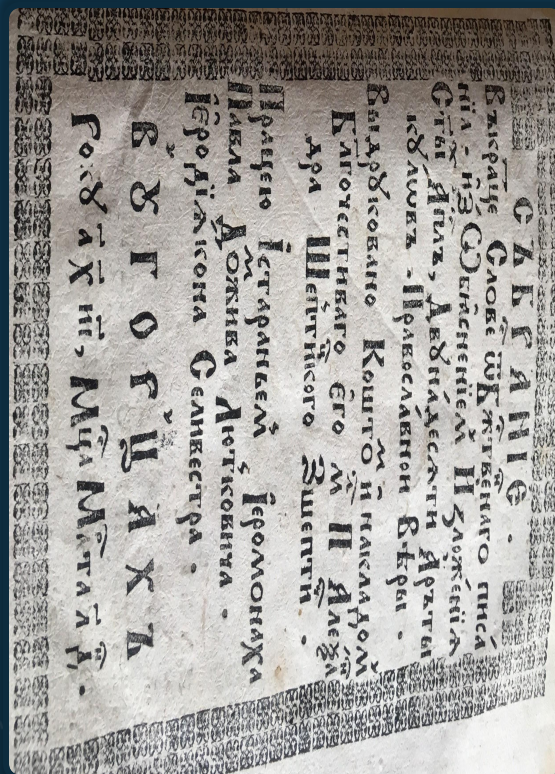 СЪБРАНІЄ .
Въкраце Словє ѿ Бж҃твенаго писа
нїѧ . из Ѡбѧсненїем И зложенїѧ
Ст҃ы Ап҃лъ, Двꙋнадесѧти Аръты
кꙋловъ . Православной Вѣры .
Выдрꙋковано Коштом и накладом
Бл҃гочестиваго єго м П Алеѯа
дра Шептицкого Зшепти .
Працею Істараньем , Іеромонаха
Павла Домжива Лютковича .
Іеродїѧкона Селивестра .
В ꙋ Г О Р Ц А Х Ъ
Рокꙋ ахиі, Мц҃а Марта д҃ .